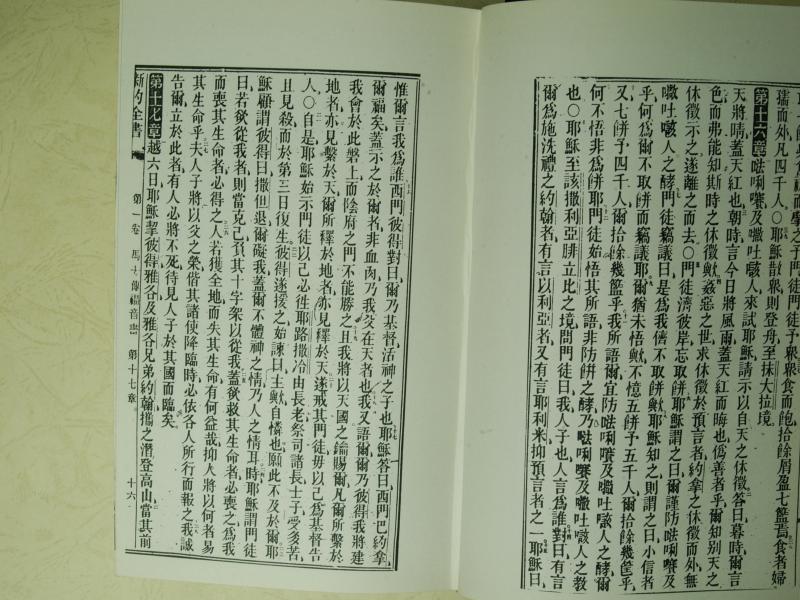 擘之予門徒徒予衆衆食而飽拾餘屑盈七籃焉食者婦
孺而外凡四千人○耶穌散衆則登舟至抹大拉境
第十六章唎及吐人來試耶穌請示以自天之休徵答曰暮時爾言
天將晴蓋天紅也朝時言今日將風雨蓋天紅而晦也僞善者乎爾知別天之
色而弗能知斯時之休徵歟姦惡之世求休徵於預言者約拿之休徵而外無
休徵示之遂離之而去○門徒濟彼岸忘取餅耶穌謂之曰爾謹防唎及
吐人之酵門徒竊議曰是爲我儕不取餅歟耶穌知之則謂之曰小信者
乎何爲爾不取餅而竊議耶爾猶未悟歟不憶五餅予五千人爾拾餘幾筐乎
又七餅予四千人爾拾餘幾籃乎我所語爾宜防唎及吐人之酵爾
何不悟非爲餅耶門徒始悟其所語非防餅之酵乃唎及吐人之教
也○耶穌至該撒利亞腓立比之境問門徒曰我人子也人言爲誰對曰有言
爾爲施洗禮之約翰者有言以利亞者又有言耶利米抑預言者之一耶穌曰
惟爾言我爲誰西門彼得對曰爾乃基督活神之子也耶穌答曰西門巴約拿
爾福矣蓋示之於爾者非血肉乃我父在天者也我又語爾爾乃彼得我將建
我會於此磐上而陰府之門不能勝之且我將以天國之鑰賜爾凡爾所繫於
地者亦見繫於天爾所釋於地者亦見釋於天遂戒其門徒毋以己爲基督告
人○自是耶穌始示門徒以己必往耶路撒冷由長老祭司諸長士子受多苦
且見殺而於第三日復生彼得遂援之始諫曰主歟自憐也願此不及於爾耶
穌顧謂彼得曰撒但退爾礙我蓋爾不體神之情乃人之情耳時耶穌謂門徒
曰若欲從我者則當克己負其十字架以從我蓋欲救其生命者必喪之爲我
而喪其生命者必得之人若獲全地而失其生命有何益哉抑人將以何者易
其生命乎夫人子將以父之榮偕其諸使降臨時必依各人所行而報之我誠
告爾立於此者有人必將不死待見人子於其國而臨矣
第十七章越六日耶穌挈彼得雅各及雅各兄弟約翰攜之潛登高山當其前
新約全書 第一卷 馬太傳福音書 第十七章 十六